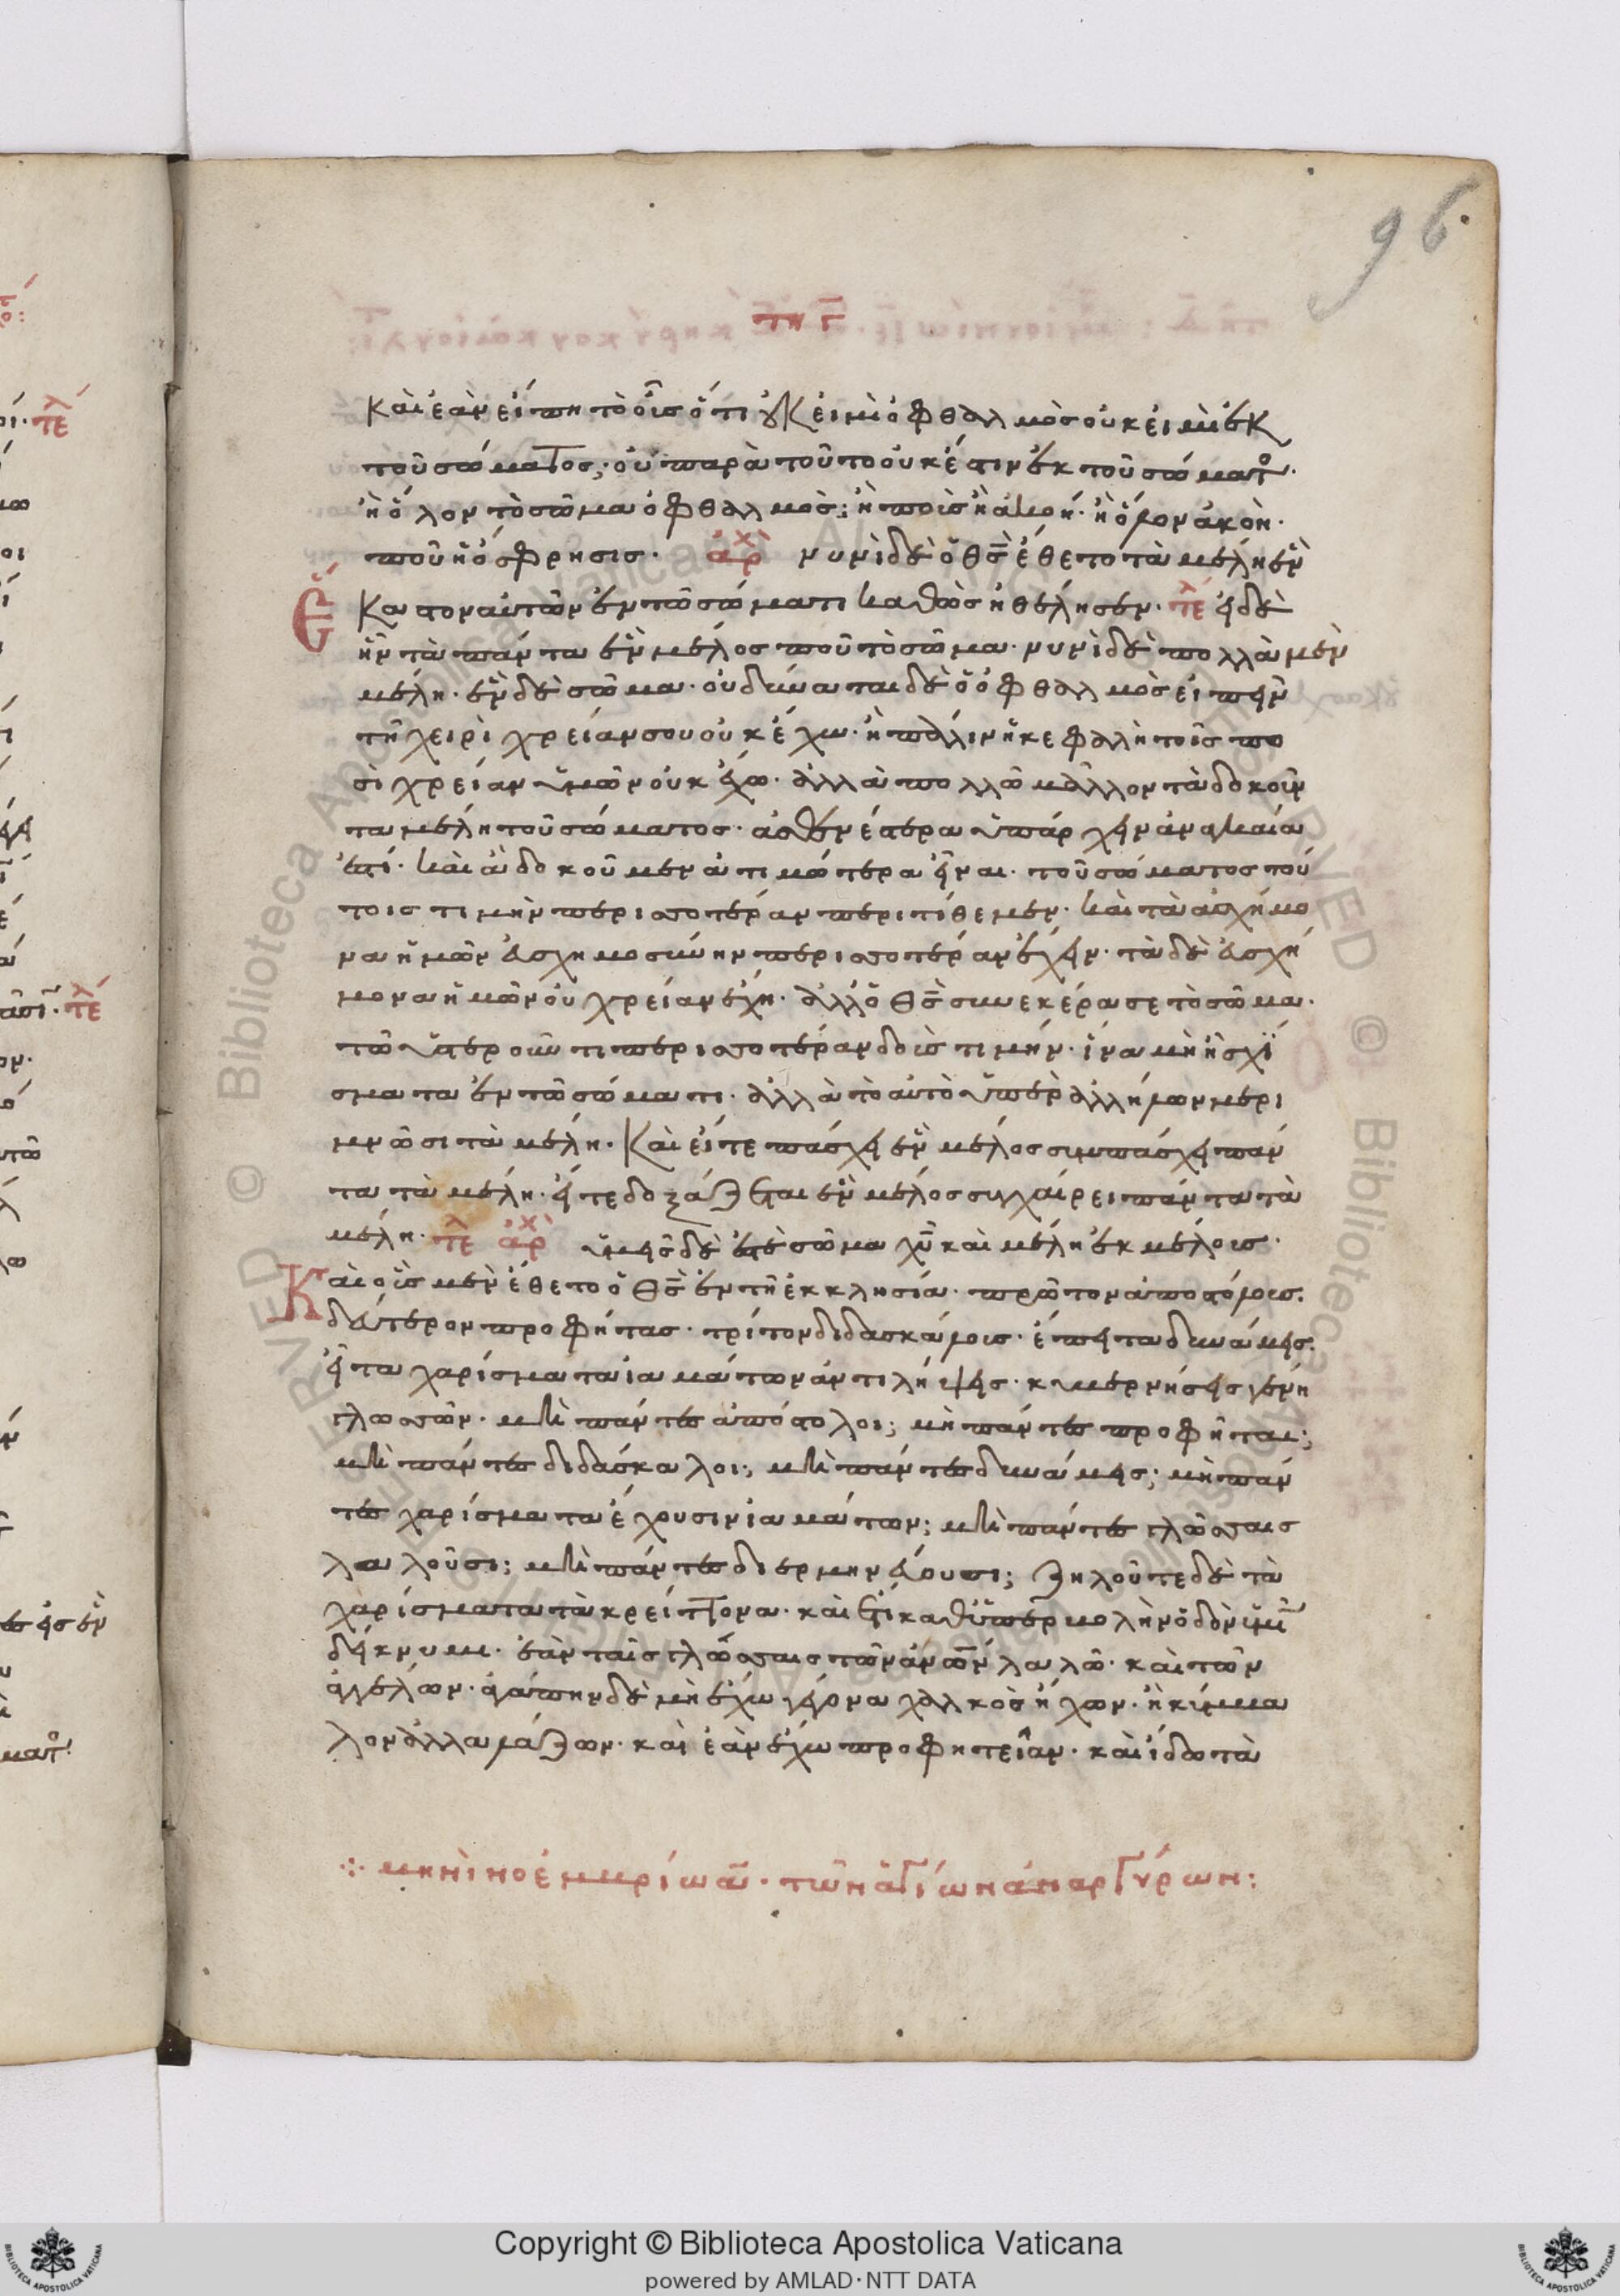 96
τη γ
καὶ ἐὰν εἴπη τὸ οὖς ὅτι οὐκ εἰμὶ ὀφθαλμὸς οὐκ εἰμὶ ἐκ
τοῦ σώματος; οὐ παρὰ τοῦτο οὐκ έστιν ἐκ τοῦ σώματο.
ἢ ὅλον τὸ σῶμα ὀφθαλμὸς;
ποῦ ἡ ὄσφρησις. ἀρχ νυνὶ δὲ ὁ θς ἔθετο τὰ μέλη ἓν
ἕκαστον αὐτῶν ἐν τῶ σώματι καθὼς ἠθέλησεν. τελ εἰ δὲ
ἦν τὰ πάντα ἓν μέλος ποῦ τὸ σῶμα. νυνὶ δὲ πολλὰ μὲν
μέλη. ἓν δὲ σῶμα. οὐ δύναται δὲ ὁ ὀφθαλμὸς εἰπεῖν
τῆ χειρὶ χρείαν σου οὐκ έχω. ἢ πάλιν ἡ κεφαλὴ τοῖς πο
σὶ χρείαν ὑμῶν οὐκ έχω. ἀλλὰ πολλῶ μᾶλλον τὰ δοκοῦν
τα μέλη τοῦ σώματος. ἀσθενέστερα ὑπάρχειν ἀναγκαία
ἐστί. καὶ ἃ δοκοῦμεν ἀτιμώτερα εἶναι. τοῦ σώματος τού
τοις τιμὴν περισσοτέραν περιτίθεμεν. καὶ τὰ ἀσχήμο
να ἡμῶν εὐσχημοσύνην περισσοτέραν ἔχειν. τὰ δὲ εὐσχή
μονα ἡμῶν οὐ χρείαν ἔχει. ἀλλ ὁ θς συνεκέρασε τὸ σῶμα.
τῶ ὑστεροῦντι περισσοτέραν δοὺς τιμήν. ἵνα μὴ ἦ σχί
σματα ἐν τῶ σώματι. ἀλλὰ τὸ αὐτὸ ὑπὲρ ἀλλήλων μερι
μνῶσι τὰ μέλη. Καὶ εἴτε πάσχει ἓν μέλος συμπάσχει πάν
τα τὰ μέλη. εἴτε δοξάζεται ἓν μέλος συγχαίρει πάντα τὰ
μέλη. τελ ἀρχ ὑμεῖς δὲ ἐστὲ σῶμα χῦ καὶ μέλη ἐκ μέλους.
Καὶ οὓς μὲν έθετο ὁ θς ἐν τῆ ἐκκλησία. πρῶτον ἀποστόλους.
δεύτερον προφήτας. τρίτον διδασκάλους. έπειτα δυνάμεις.
εἶτα χαρίσματα ἰαμάτων ἀντιλήψεις. κυβερνήσεις γένη
γλωσσῶν. μὴ πάντες ἀπόστολοι; μὴ πάντες προφῆται;
μὴ πάντες διδάσκαλοι; μὴ πάντες δυνάμεις; μὴ πάν
τες χαρίσματα έχουσιν ἰαμάτων; μὴ πάντες γλώσσαις
λαλοῦσι; μὴ πάντες διερμηνεύουσι; ζηλοῦτε δὲ τὰ
χαρίσματα τὰ κρείττονα. καὶ ἔτι καθ ὑπερβολὴν ὁδὸν ὑμῖ
δείκνυμι. ἐὰν ταῖς γλώσσαις τῶν ἀνων λαλῶ. καὶ τῶν
ἀγγέλων. ἀγάπην δὲ μὴ ἔχω γέγονα χαλκὸς ἠχων. ἢ κύμβα
λον ἀλλαλάζων. καὶ ἐὰν ἔχω προφητείαν. καὶ ἰδω τὰ
μηνὶ νοεμβρίω α. τῶν ἁγίων ἀναργύρων:
Copyright © Biblioteca Apostolica Vaticana
powered by AMLAD·NTT DATA